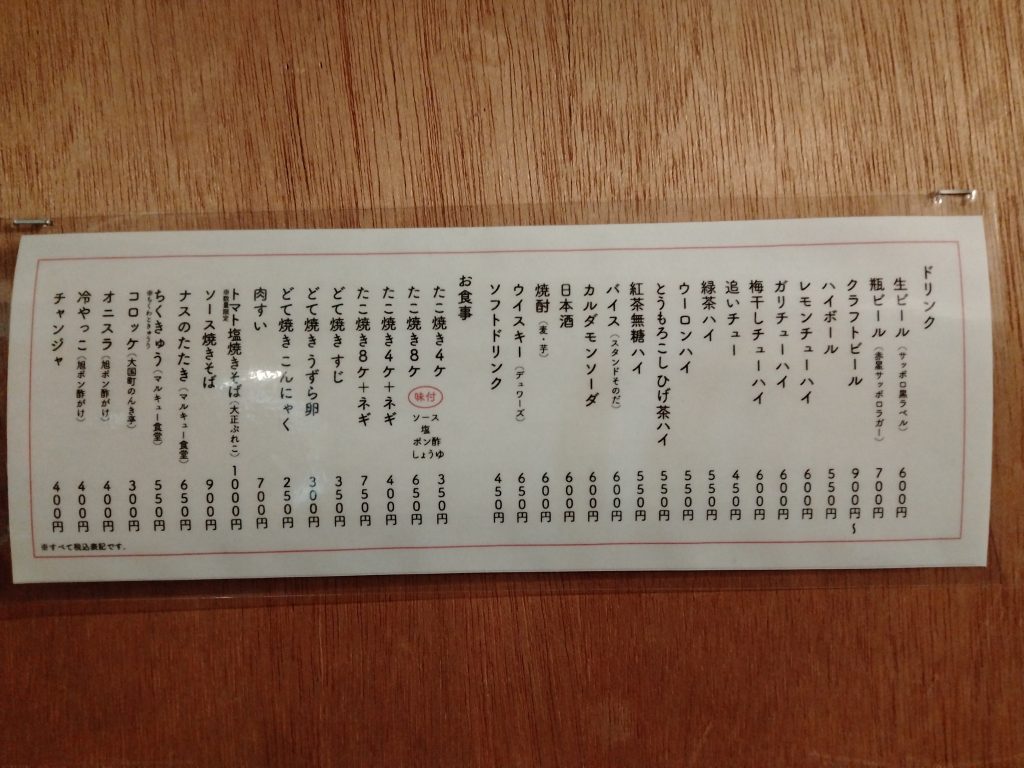 ドリンク
生ビール（サッポロ黒ラベル） 600円
瓶ビール（赤星サッポロラガー） 700円
クラフトビール 900円〜
ハイボール 550円
レモンチューハイ 600円
ガリチューハイ 600円
梅干しチューハイ 600円
追いチュー 450円
緑茶ハイ 550円
ウーロンハイ 550円
とうもろこしひげ茶ハイ 550円
紅茶無糖ハイ 550円
バイス（スタンドそのだ） 600円
カルダモンソーダ 600円
日本酒 600円
焼酎（麦・芋） 600円
ウイスキー（デュワーズ） 650円
ソフトドリンク 450円
お食事
たこ焼き4ケ 350円
たこ焼き8ケ 650円
味付
ソース
塩
ポン酢
しょうゆ
たこ焼き4ケ＋ネギ 400円
たこ焼き8ケ＋ネギ 750円
どて焼き すじ 350円
どて焼き うずら卵 300円
どて焼き こんにゃく 250円
肉すい 700円
トマト塩焼きそば（大正ぷれこ） 1000円
※数量限定
ソース焼きそば 900円
ナスのたたき（マルキュー食堂） 650円
ちくきゅう（マルキュー食堂） 550円
※ちくわときゅうり
コロッケ（大国町のんき亭） 300円
オニスラ（旭ポン酢がけ） 400円
冷やっこ（旭ポン酢がけ） 400円
チャンジャ 400円
※すべて税込表記です。